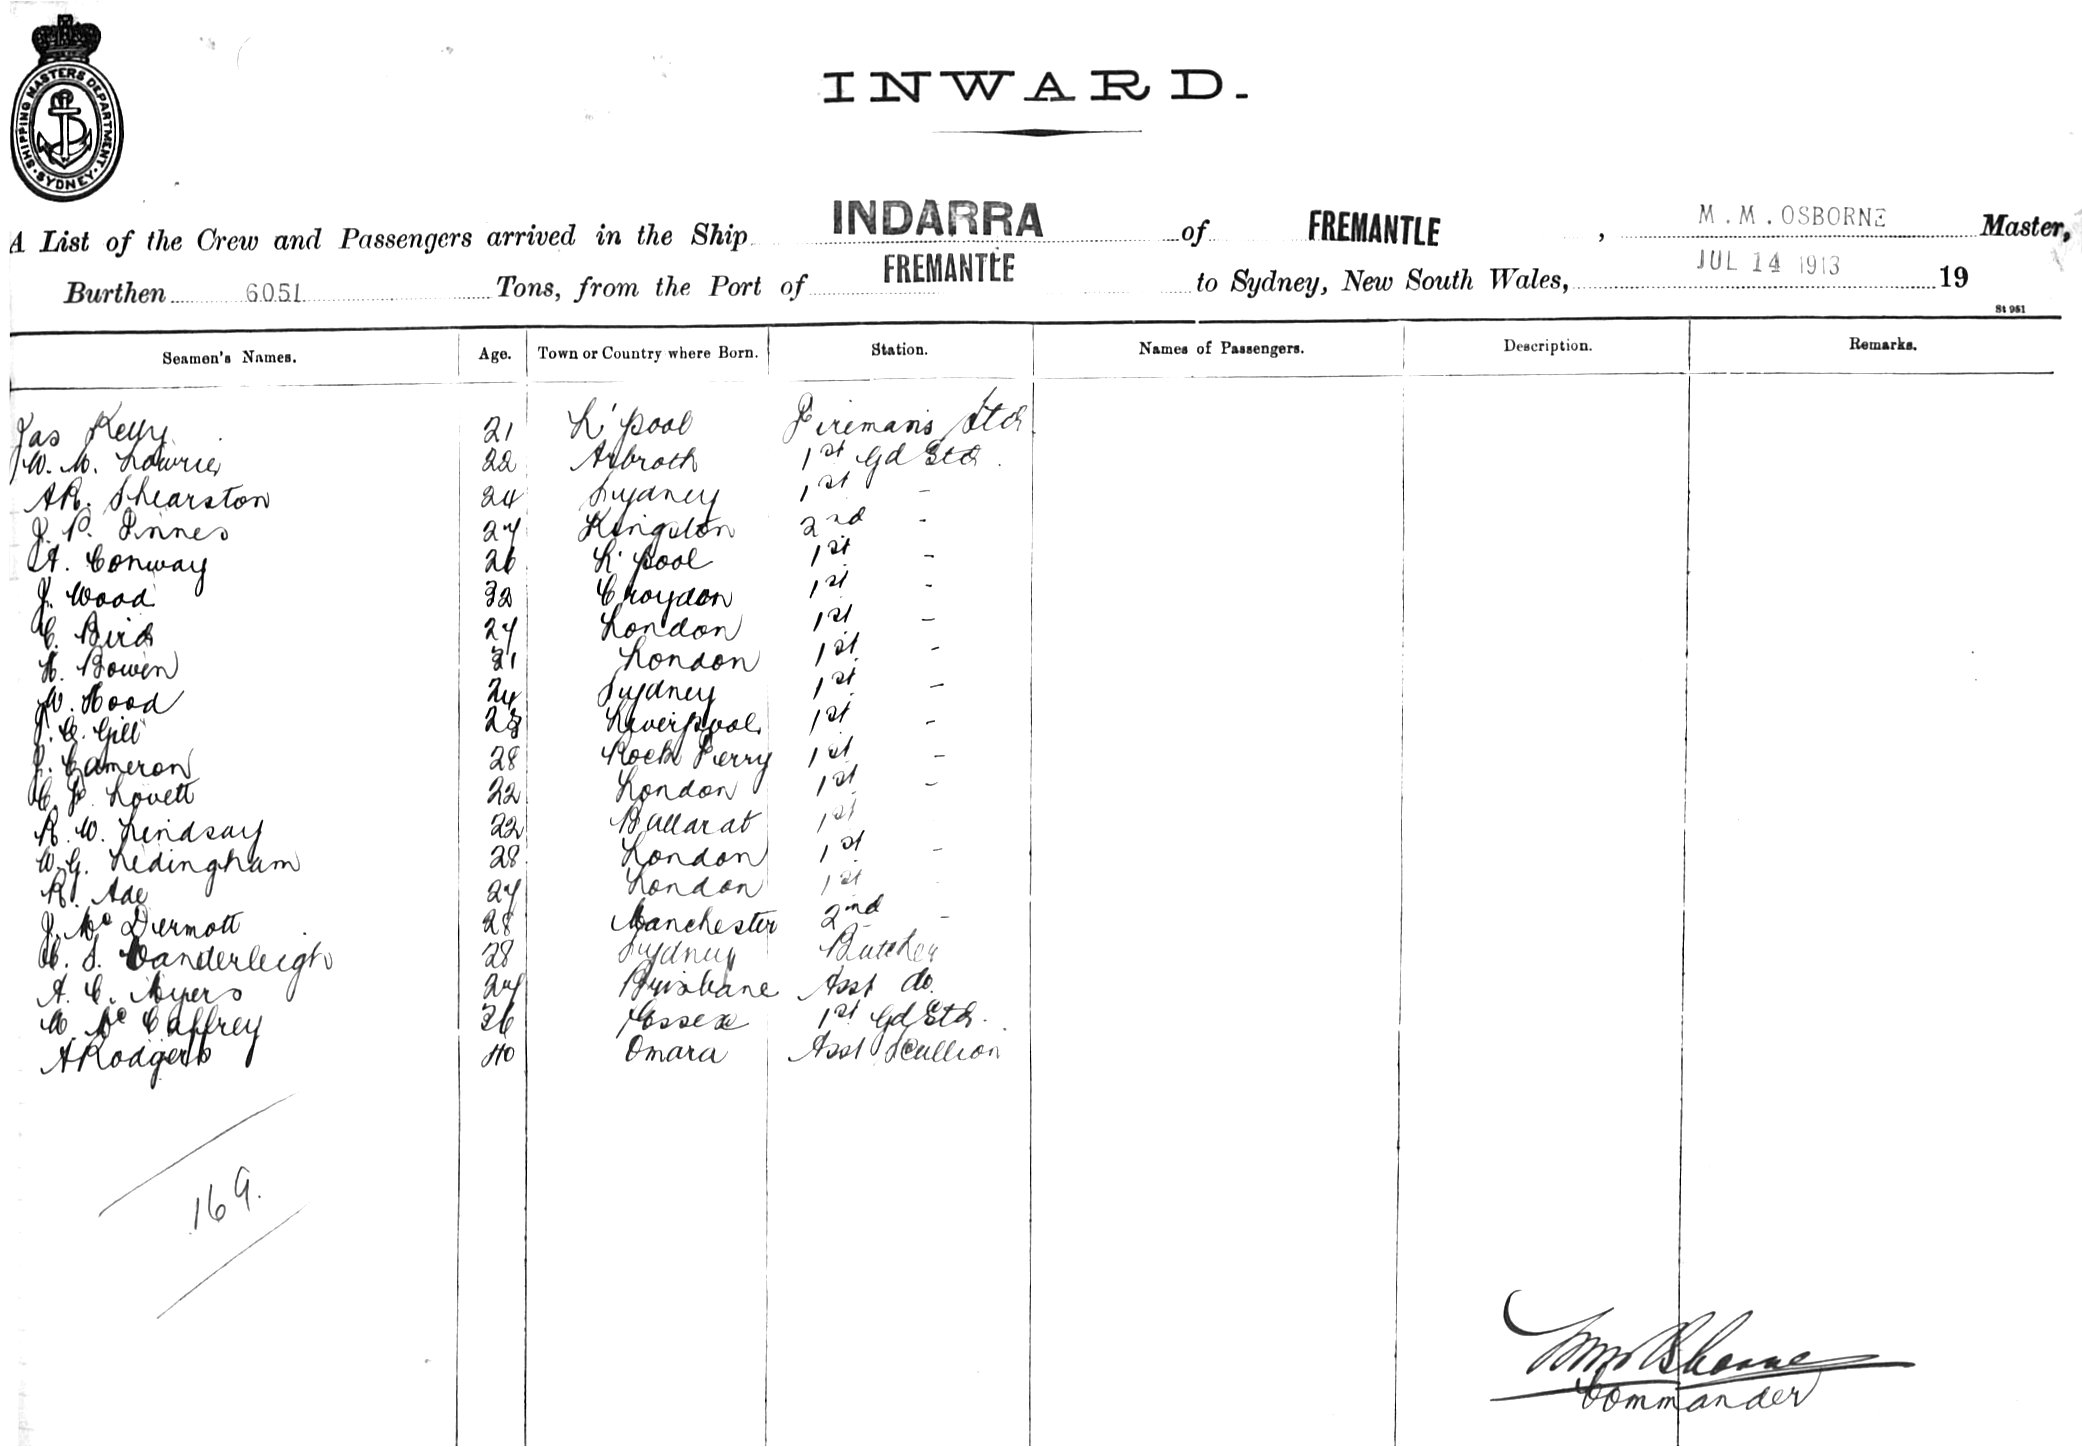 SHIPPING MASTERS DEPARTMENT
SYDNEY
INWARD.
A List of the Crew and Passengers arrived in the Ship INDARRA of FREMANTLE, M.M. OSBORNE Master,
Burthen 6051 Tons, from the Port of FREMANTLE to Sydney, New South Wales, JUL 14 1913 19
St 951
Seamen's Names. Age. Town or Country where Born. Station. Names of Passengers. Description. Remarks.
Jas Kelly 21 L'pool Fireman's Std
W. M. Lowrie 22 Arbroth 1st Gd Std.
AR. Shearston 24 Sydney 1st -
J. P. Innes 27 Kingston 2nd -
A. Conway 26 L'pool 1st -
J. Wood 32 Croydon 1st -
C. Bird 27 London 1st -
H. Bowen 31 London 1st -
W. Hood 24 Sydney 1st -
J. C. Gill 28 Liverpool 1st -
J. Cameron 28 Rock Ferry 1st -
C. F. Lovett 22 London 1st -
R. W. Lindsay 22 Ballarat 1st
W. G. Ledingham 28 London 1st -
R. Ade 27 London 1st
J. Mc Dermott 28 Manchester 2nd -
S. Vanderleigh 28 Sydney Butcher
A. C. Myers 27 Brisbane Asst do.
Mc Caffrey 36 Essex 1st Gd Std.
A Rodgers 40 Omara Asst Scullion
169.
M M Osborne
Commander